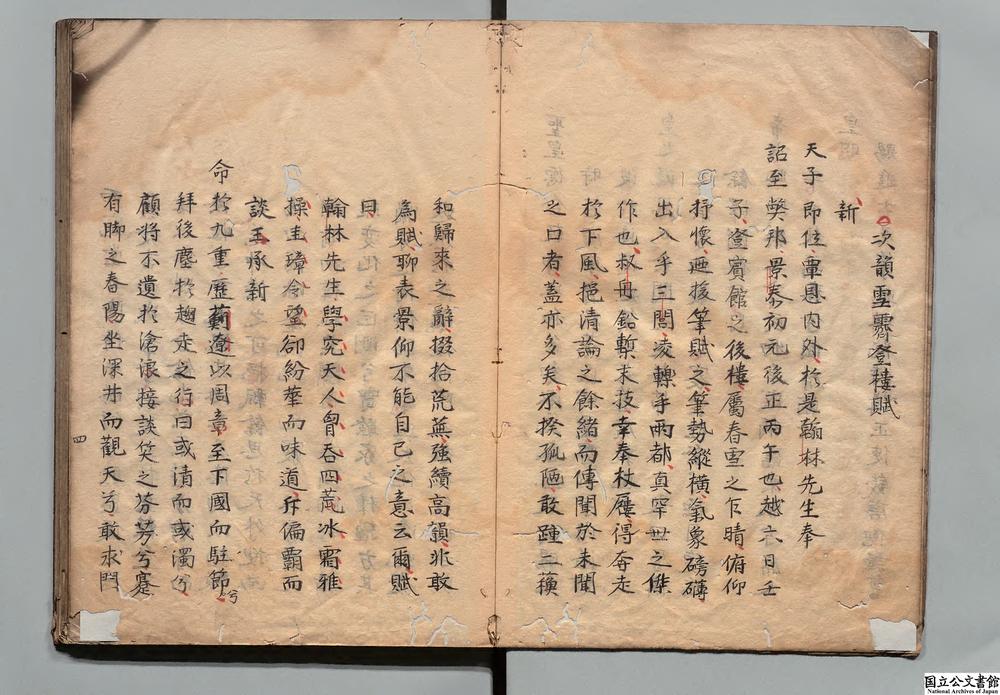 次韻雪霽登樓賦
新
天子即位覃恩內外於是翰林先生奉
詔至獘邦景泰初元後正丙子也越六日壬
子登賓館之後樓屬春雪之乍晴俯仰
抒懷迺援筆賦之筆勢縱橫氣象磅礡
出入乎三閭凌轢乎兩都真罕世之傑
作也叔舟鉛槧末技幸奉杖屨得奔走
於下風挹清論之餘緒而傳聞於未聞
之口者蓋亦多矣不揆孤陋敢踵二蘓
和歸來之辭掇拾荒蕪強續高韻非敢
為賦聊表景仰不能自已之意云爾賦
曰
翰林先生學究天人曾吞四荒冰霜雅
操圭璋令望卻紛華而味道斥偏霸而
談王承新
命於九重歷薊遼以周章至下國而駐節兮
拜後塵於趨走之行曰或清而或濁兮
顧將不遺於滄浪接談笑之芬芳兮蹇
有脚之春陽坐深井而觀天兮敢求門
四
国立公文書館
National Archives of Japan